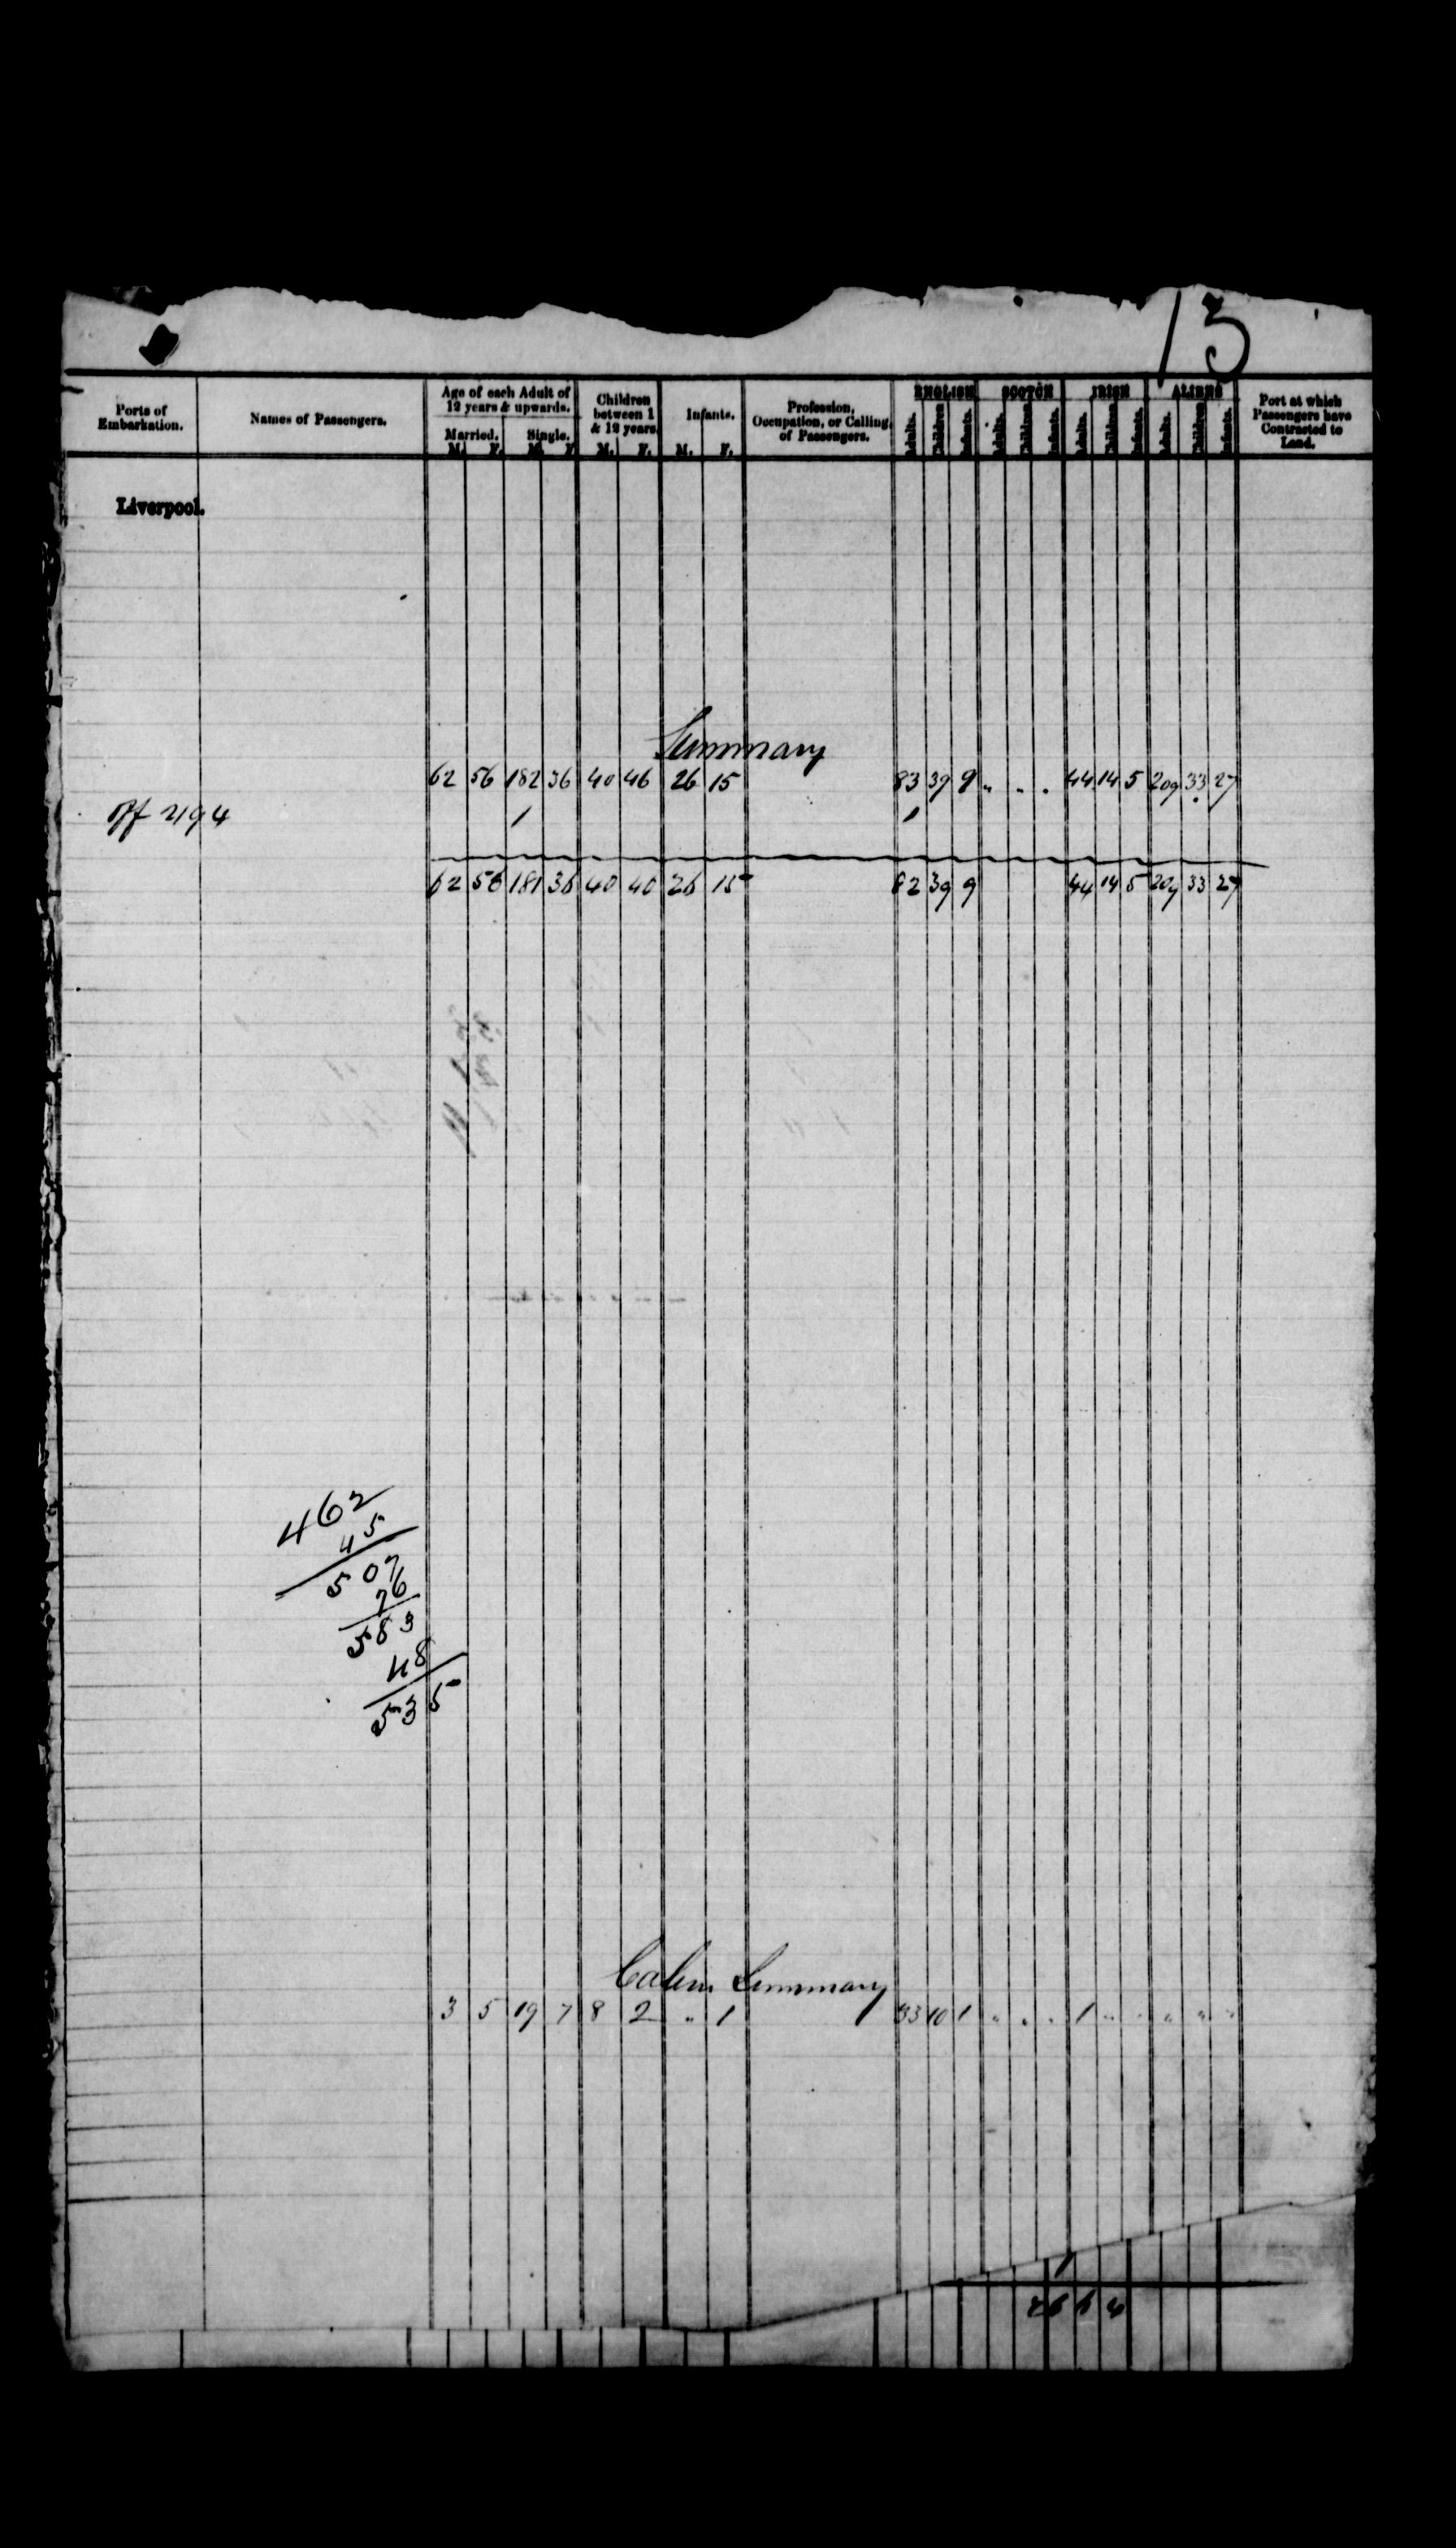 13
Ports of Embarkation. Names of Passengers. Age of each Adult of 12 years & upwards. Children between 1 & 12 years. Infants. Profession, Occupation, or Calling of Passengers. ENGLISH SCOTCH IRISH ALIENS Port at which Passengers have Contracted to Land.
Married. Single.
M. F. M. F. M. F. M. F. Adults. Children Infants. Adults. Children Infants. Adults. Children Infants. Adults. Children Infants.
Liverpool.
Summary
62 56 182 36 40 46 26 15 83 39 9 " . . 44 14 5 209 33 27
off 2194 1 1
62 56 181 36 40 40 26 15 82 39 9 44 14 5 209 33 27
462
45
507
76
583
48
535
Cabin Summary
3 5 19 7 8 2 " 1 33 10 1 " " " 1 " " " " "